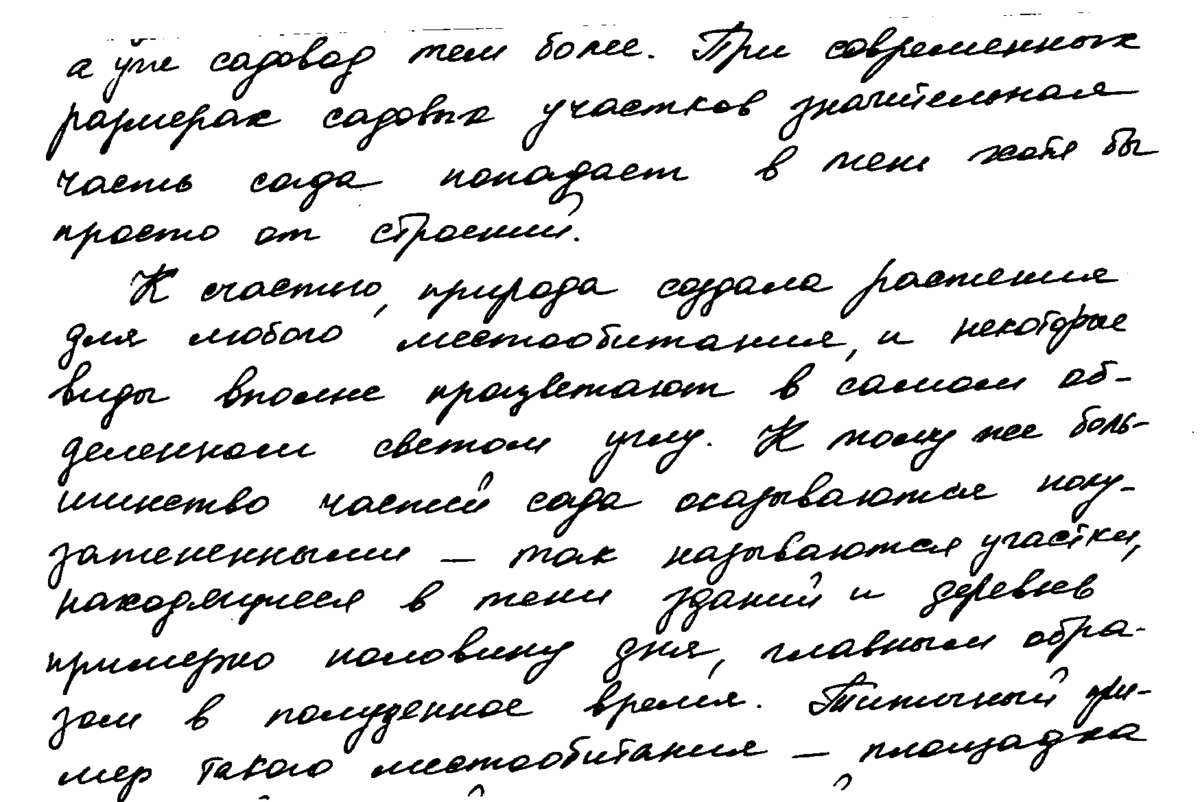 а уж садовод тем более. При современных
размерах садовых участков значительная
часть сада попадает в тень хотя бы
просто от строений.
К счастью, природа создала растения
для любого местообитания, и некоторые
виды вполне процветают в самом об-
деленном светом углу. К тому же боль-
шинство частей сада оказываются полу-
затененными — так называются участки,
находящиеся в тени зданий и деревьев
примерно половину дня, главным обра-
зом в полуденное время. Типичный при-
мер такого местообитания — площадка